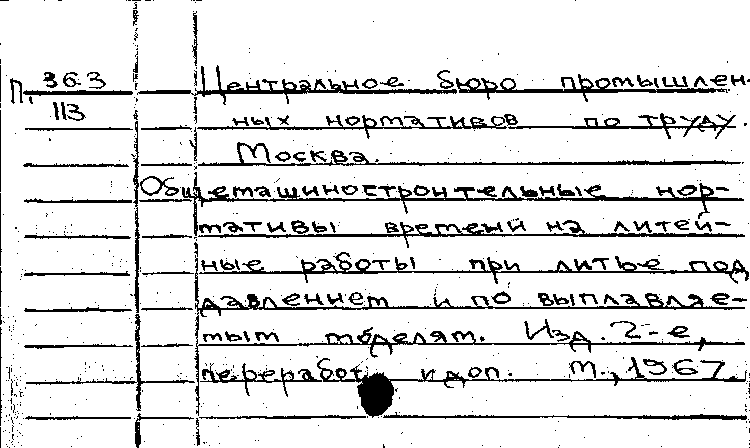 П. 363
113
Центральное бюро промышлен-
ных нормативов по труду.
Москва.
Общемашиностроительные нор-
мативы времени на литей-
ные работы при литье под
давлением и по выплавляе-
мым моделям. Изд. 2-е,
переработ. и доп. М., 1967.